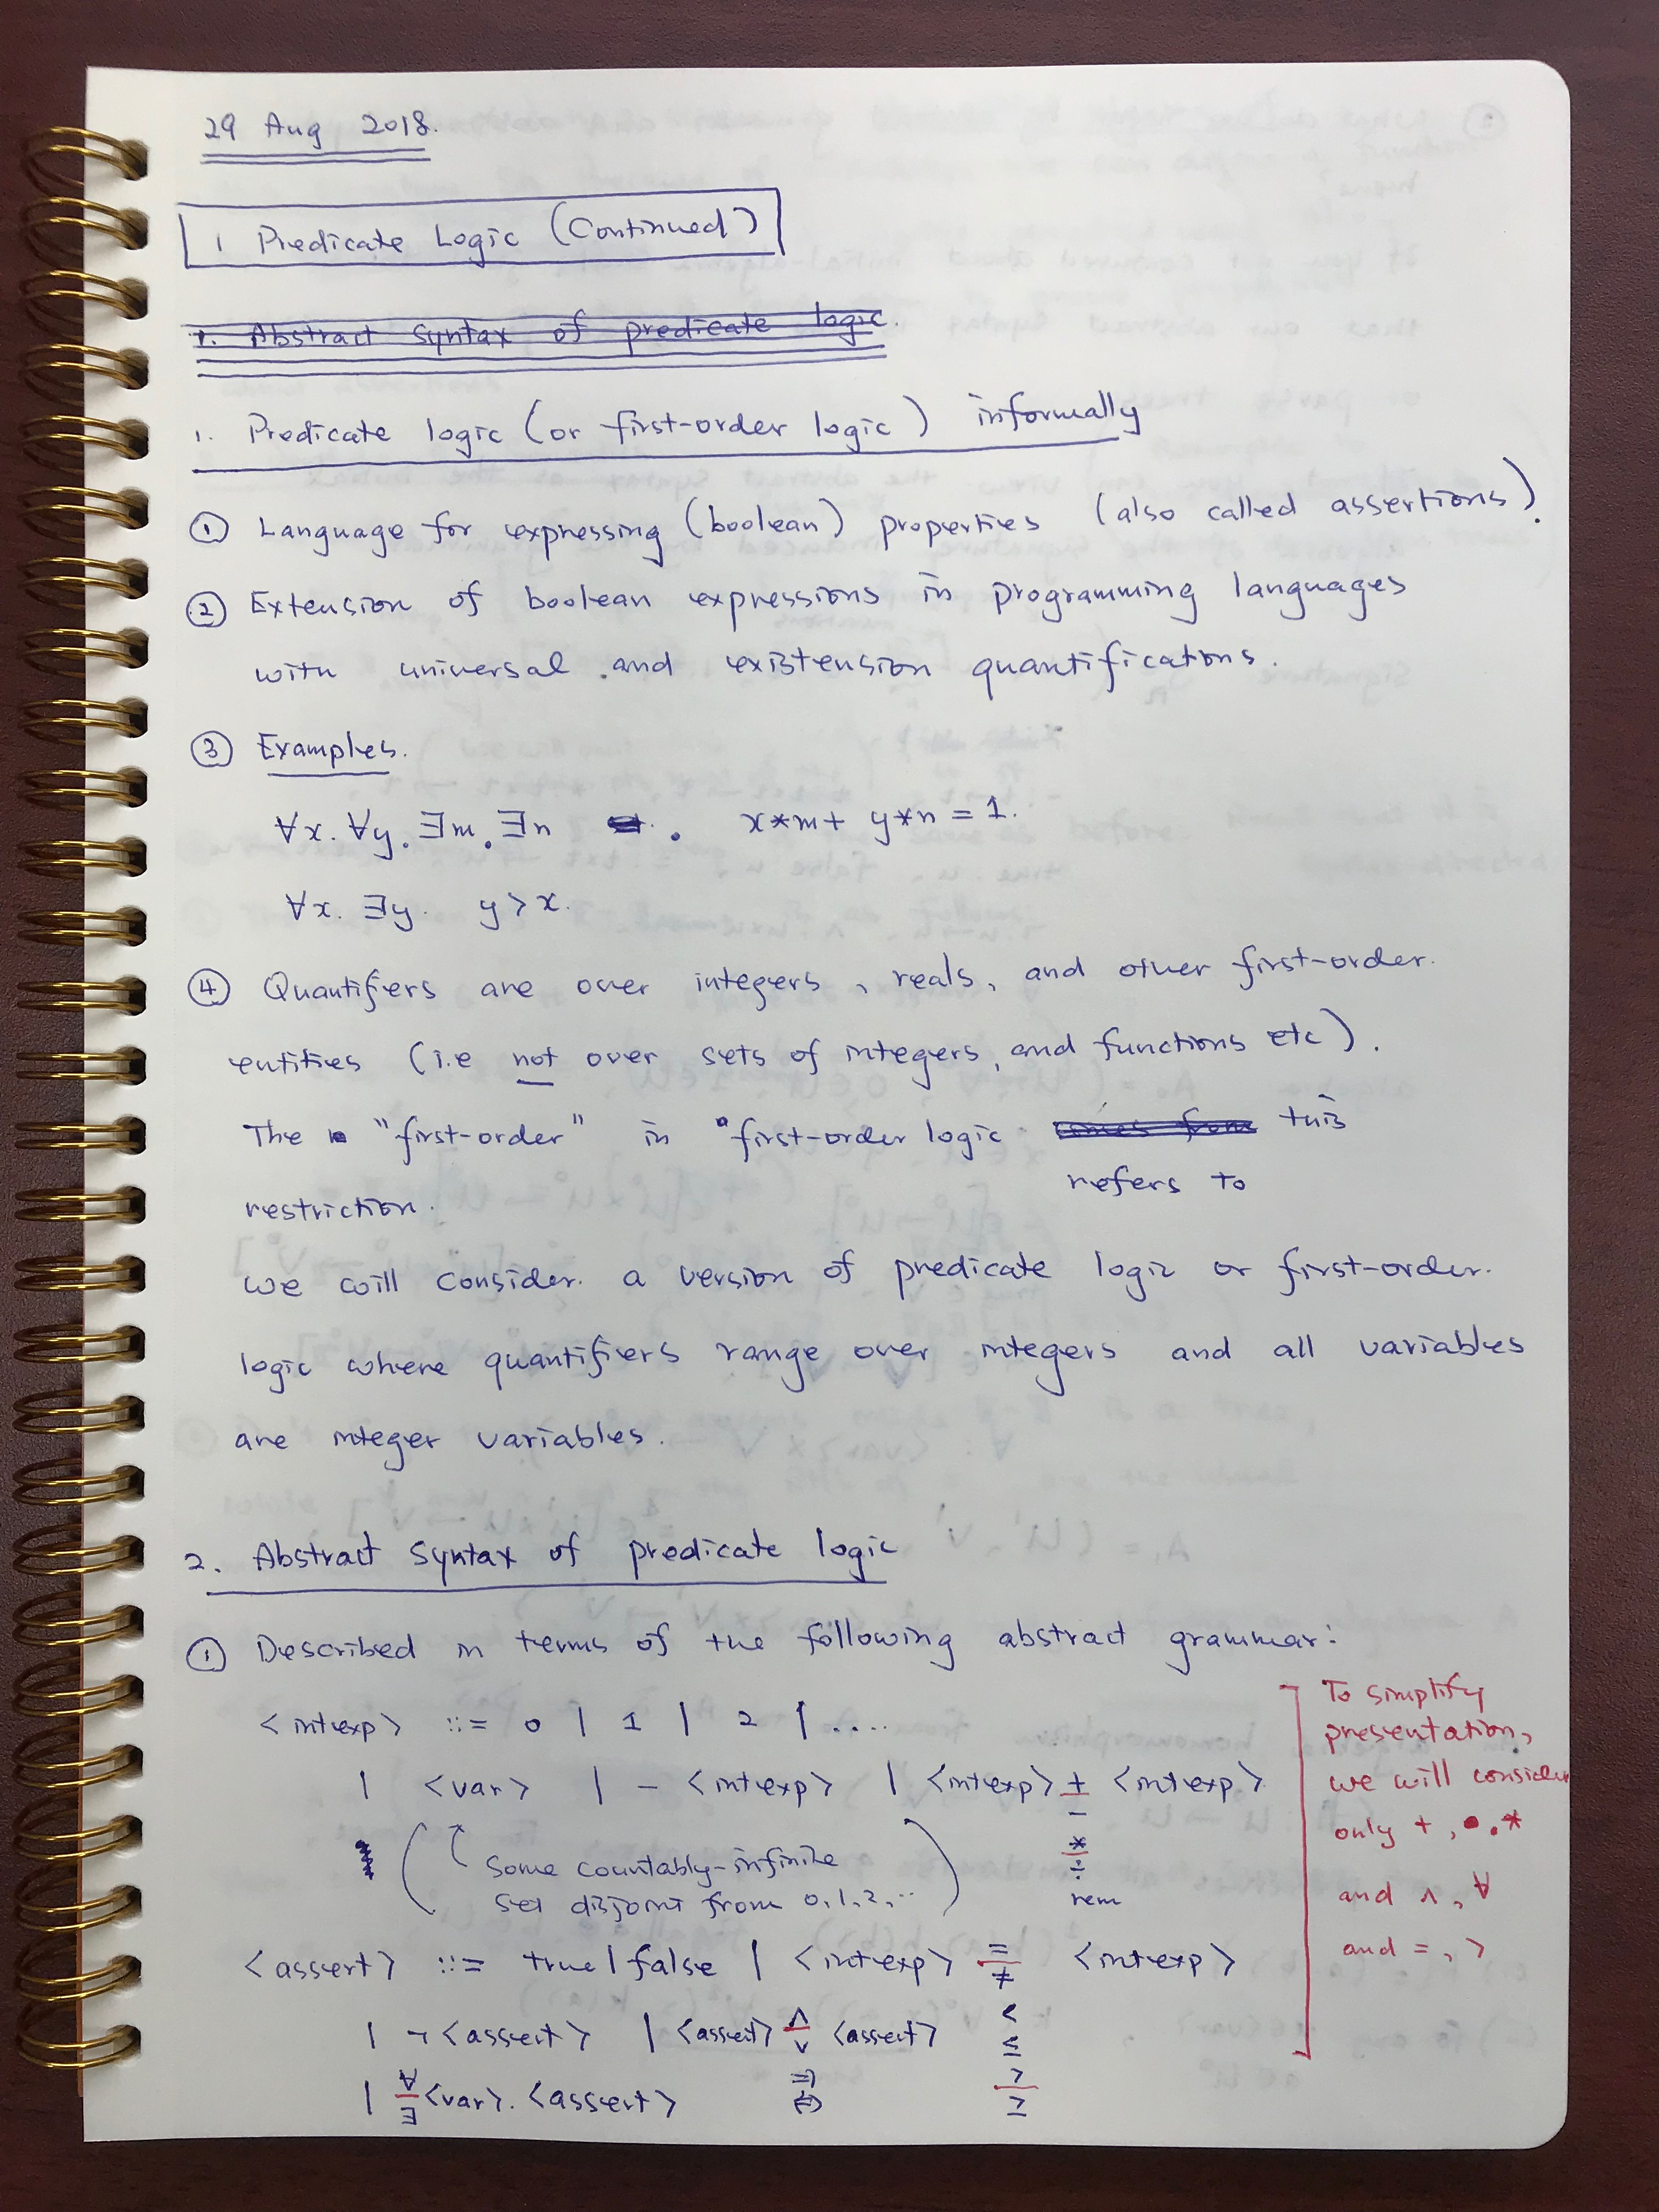 29 Aug 2018.
1 Predicate Logic (Continued)
1. Abstract Syntax of predicate logic.
1. Predicate logic (or first-order logic) informally
① Language for expressing (boolean) properties (also called assertions).
② Extension of boolean expressions in programming languages
with universal and existension quantifications.
③ Examples.
∀x. ∀y. ∃m. ∃n . x*m + y*n = 1.
∀x. ∃y. y > x.
④ Quantifiers are over integers, reals, and other first-order.
entities (i.e not over sets of integers, and functions etc).
The "first-order" in "first-order logic comes from this
refers to
restriction.
we will consider. a version of predicate logic or first-order.
logic where quantifiers range over integers and all variables
are integer variables.
2. Abstract Syntax of predicate logic
① Described in terms of the following abstract grammar:
<intexp> ::= 0 | 1 | 2 | ....
| <var> | - <intexp> | <intexp> + <intexp>
-
( some countably-infinite *
÷
set disjoint from 0, 1, 2, .. ) rem
<assert> ::= true | false | <intexp> = <intexp>
≠
| ¬<assert> | <assert> ∧ <assert> <
∨ ≤
| ∀<var>. <assert> ⇒ >
∃ ⇔ ≥
To simplify
presentation,
we will consider
only + , . *
and ∧, ∀
and =, >